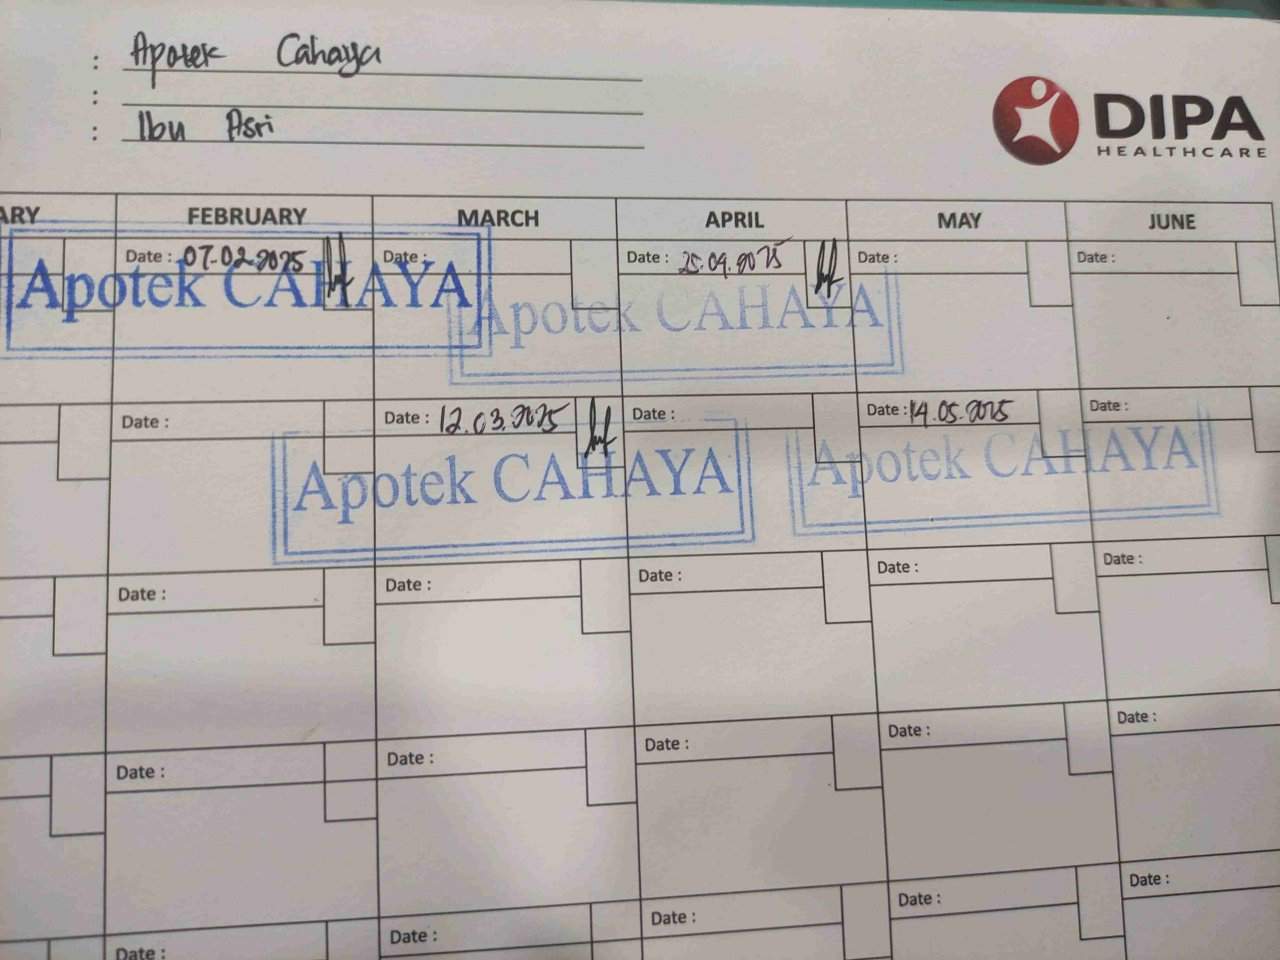 : Apotek Cahaya
:
: Ibu Asri
DIPA
HEALTHCARE
ARY FEBRUARY MARCH APRIL MAY JUNE
Date : 07.02.2025 Date : Date : 25.04.2025 Date : Date :
Apotek CAHAYA Apotek CAHAYA
Date : Date : 12.03.2025 Date : Date : 14.05.2025 Date :
Apotek CAHAYA Apotek CAHAYA
Date : Date : Date : Date : Date :
Date : Date : Date : Date : Date :
Date : Date : Date : Date : Date :